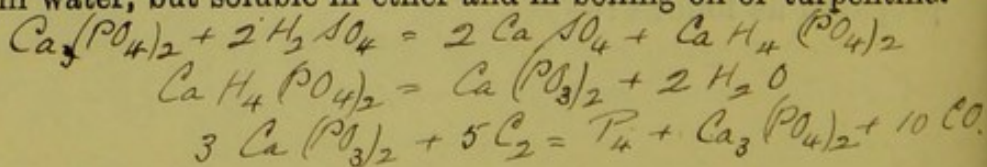 in water, but soluble in ether and in boiling oil of turpentine.
Ca₃(PO₄)₂ + 2 H₂ SO₄ = 2 Ca SO₄ + Ca H₄ (PO₄)₂
Ca H₄ (PO₄)₂ = Ca (PO₃)₂ + 2 H₂ O
3 Ca (PO₃)₂ + 5 C₂ = P₄ + Ca₃ (PO₄)₂ + 10 CO.